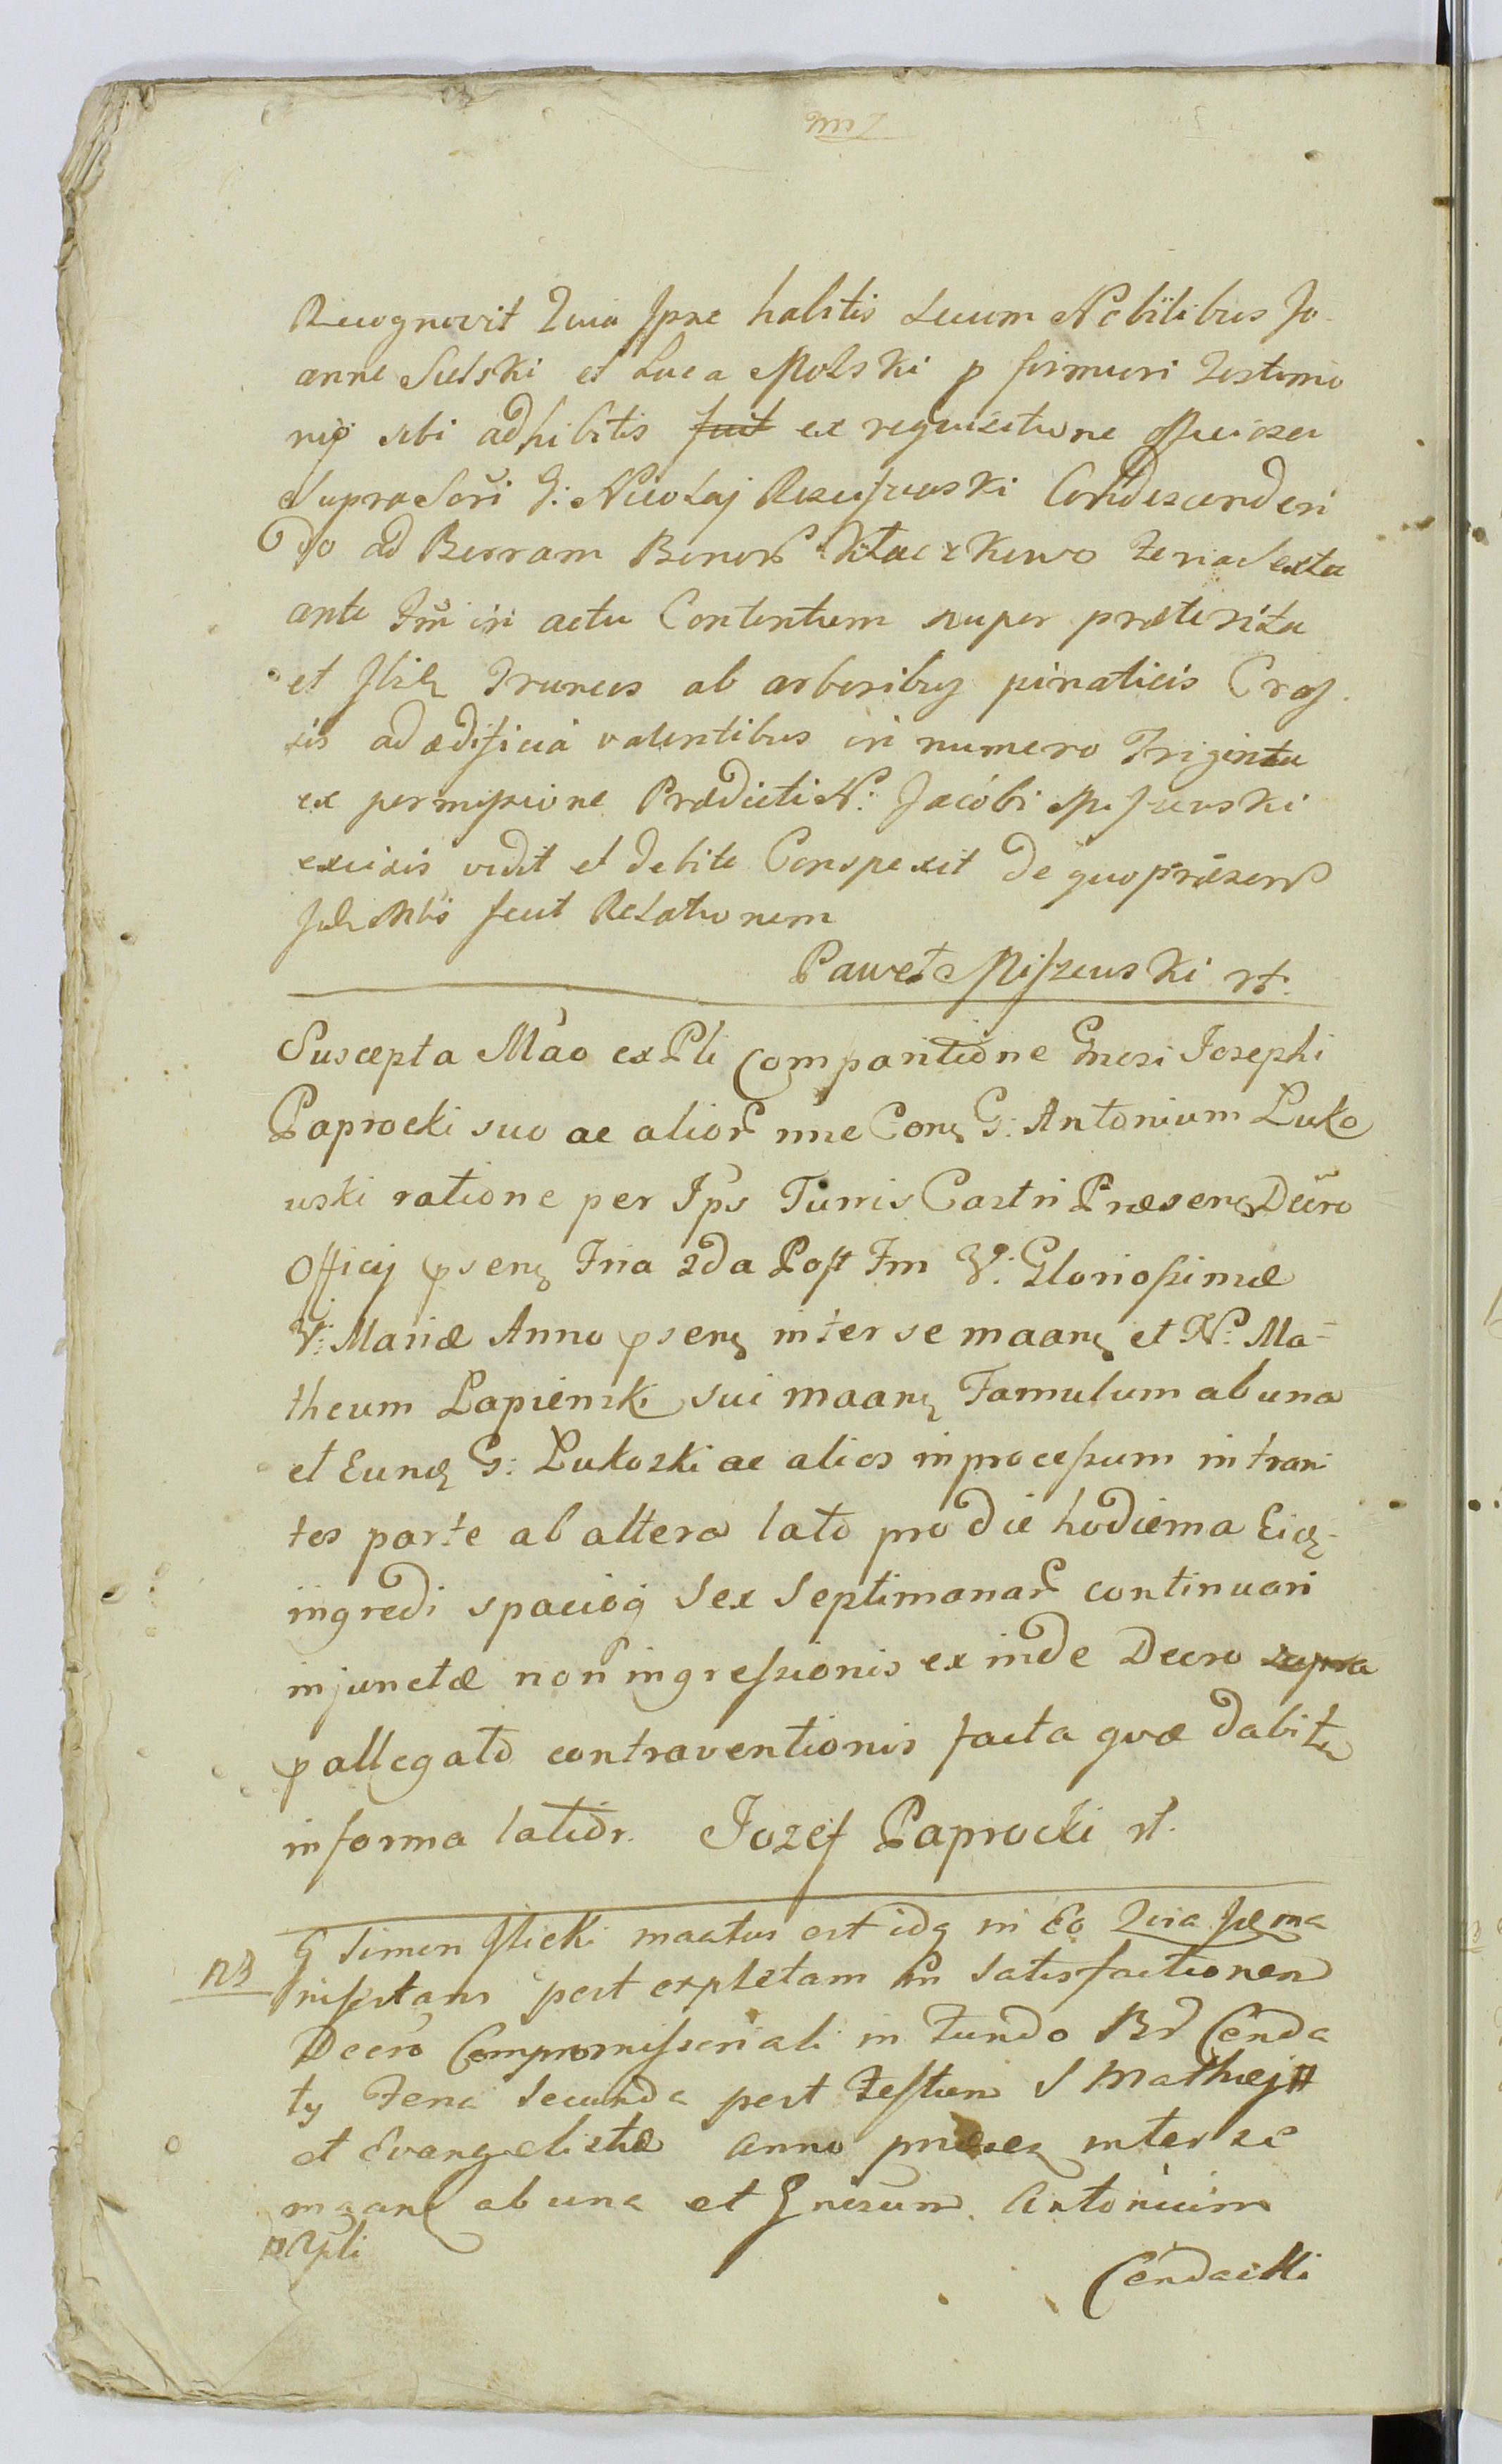 Recognovit Quia Ipse habitis secum Nobilibus Jo-
anne Sulski et Luca Molski p firmiori Testimo
nio sibi adhibitis fuit ex requisitione
supra G: Nicolaj Condescenden
do ad Borram Bonor Kłaczkowo Feria Sexta
ante Fm in actu Contentum nuper præterita
et Ibiq Truncos ab arboribus pinaticis Cras
sis ad ædificia valentibus in numero Triginta
ex permissione Prædicti N: Jacobi Miszewski
excisis vidit et debite Conspexit de quo præsens
fecit Relationem
Paweł Miszewski rt.
Suscepta Mão ex Pli Comparitione Gnosi Josephi
Paprocki suo ac alior nne Con G: Antonium Luko
uski ratione per Ips Turris Castri Præsen Decro
Officij psen Fria 2da Post Fm V: Gloriosimæ
V: Mariæ Anno psen inter se maan et N: Ma-
theum Lapienski sui maan Famulum ab una
et Eund G: Lukoski ac alios in processum intran
tes parte ab altera lato pro die hodierna Eidq-
ingredi spacioq sex septimanar continuari
injunctæ non ingressionis ex inde Decro supra
p allegato contraventionis facta quæ dabitur
in forma latior. Jozef Paprocki rt.
NB G Simon Ilicki maatus est idq in Eo Quia Ipse ma
nifestans post expletam in satisfactionem
Decro Compromisseriali in Fundo Bo Cenda
ty Feria secunda post Festum S Mathej A
et Evangelistæ anno præsen inter se
maan ab una et Gnosum Antonium
Cendacki